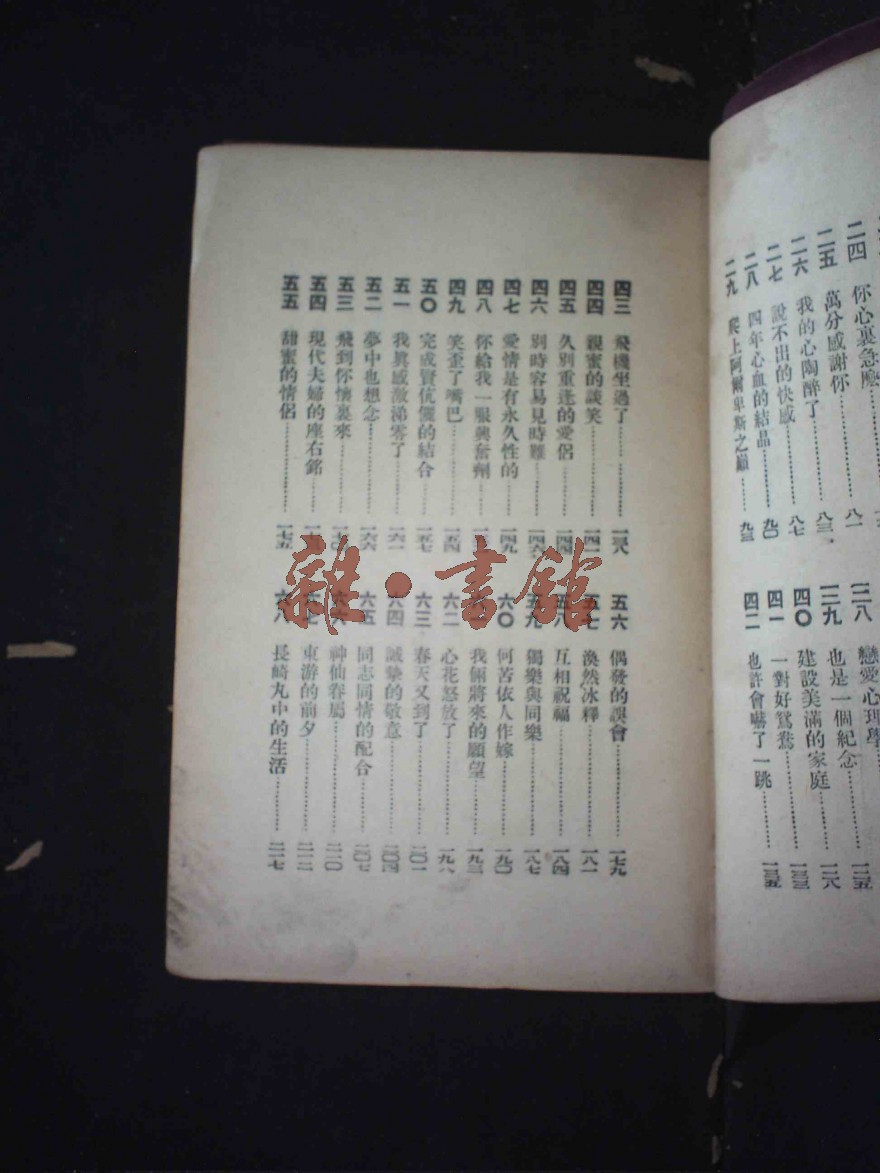 二四 你心裏急麽 八一
二五 萬分感謝你 八三
二六 我的心陶醉了 八七
二七 說不出的快感
二八 四年心血的結晶 九〇
二九 爬上阿爾卑斯之巔 九三
三八 戀愛心理學 一二五
三九 也是一個紀念 一二八
四〇 建設美滿的家庭 一三三
四一 一對好鴛鴦
四二 也許會嚇了一跳 一三五
四三 飛機坐過了 一三八
四四 親蜜的談笑 一四一
四五 久別重逢的愛侶 一四四
四六 別時容易見時難 一四六
四七 愛情是有永久性的 一四九
四八 你給我一服興奮劑
四九 笑歪了嘴巴 一五四
五〇 完成賢伉儷的結合 一五七
五一 我眞感激涕零了 一六一
五二 夢中也想念 一六六
五三 飛到你懷裏來
五四 現代夫婦的座右銘
五五 甜蜜的情侶 一七五
五六 偶發的誤會 一七九
五七 渙然冰釋 一八一
五八 互相祝福 一八四
五九 獨樂與同樂 一八七
六〇 何苦依人作嫁 一九〇
六一 我倆將來的願望 一九三
六二 心花怒放了 一九八
六三 春天又到了 二〇一
六四 誠摯的敬意 二〇四
六五 同志同情的配合 二〇七
六六 神仙眷屬 二一〇
六七 東游的前夕 二一二
六八 長崎丸中的生活 二一七
雜·書館